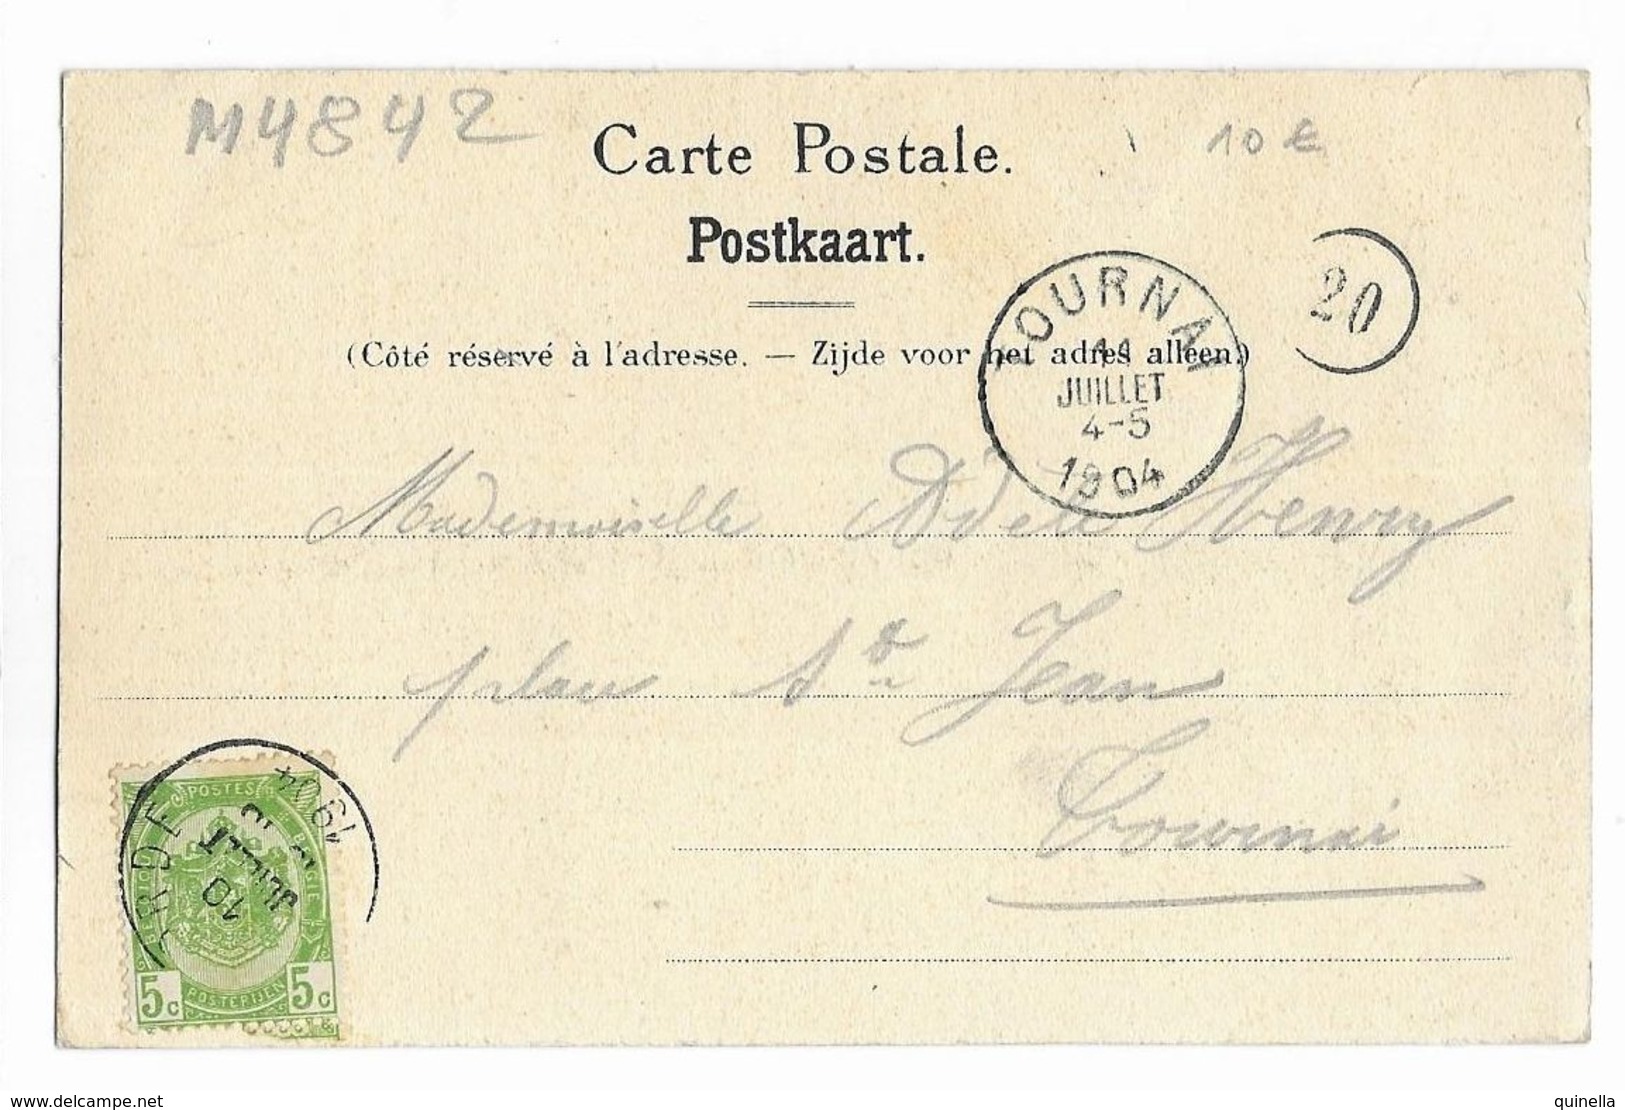 M4842
Carte Postale.
10 €
Postkaart.
20
(Côté réservé à l'adresse. — Zijde voor het adres alleen.)
TOURNAI
11
JUILLET
4-5
1904
Mademoiselle Adèle Henry
Jean
Tournai
POSTES
BELGIE
1904
10
JUILLET
5c POSTERIJEN 5c
www.delcampe.net
quinella